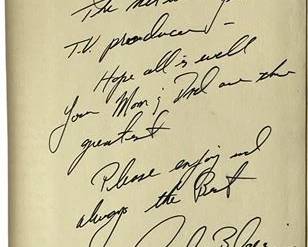 The
T.V. producer –
Hope all is well
Your Mom & Dad are the
greatest
Please enjoy and
always the Best